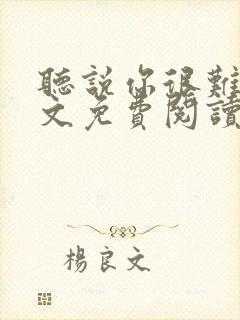 聽說你很難
文免費閱讀
楊良文